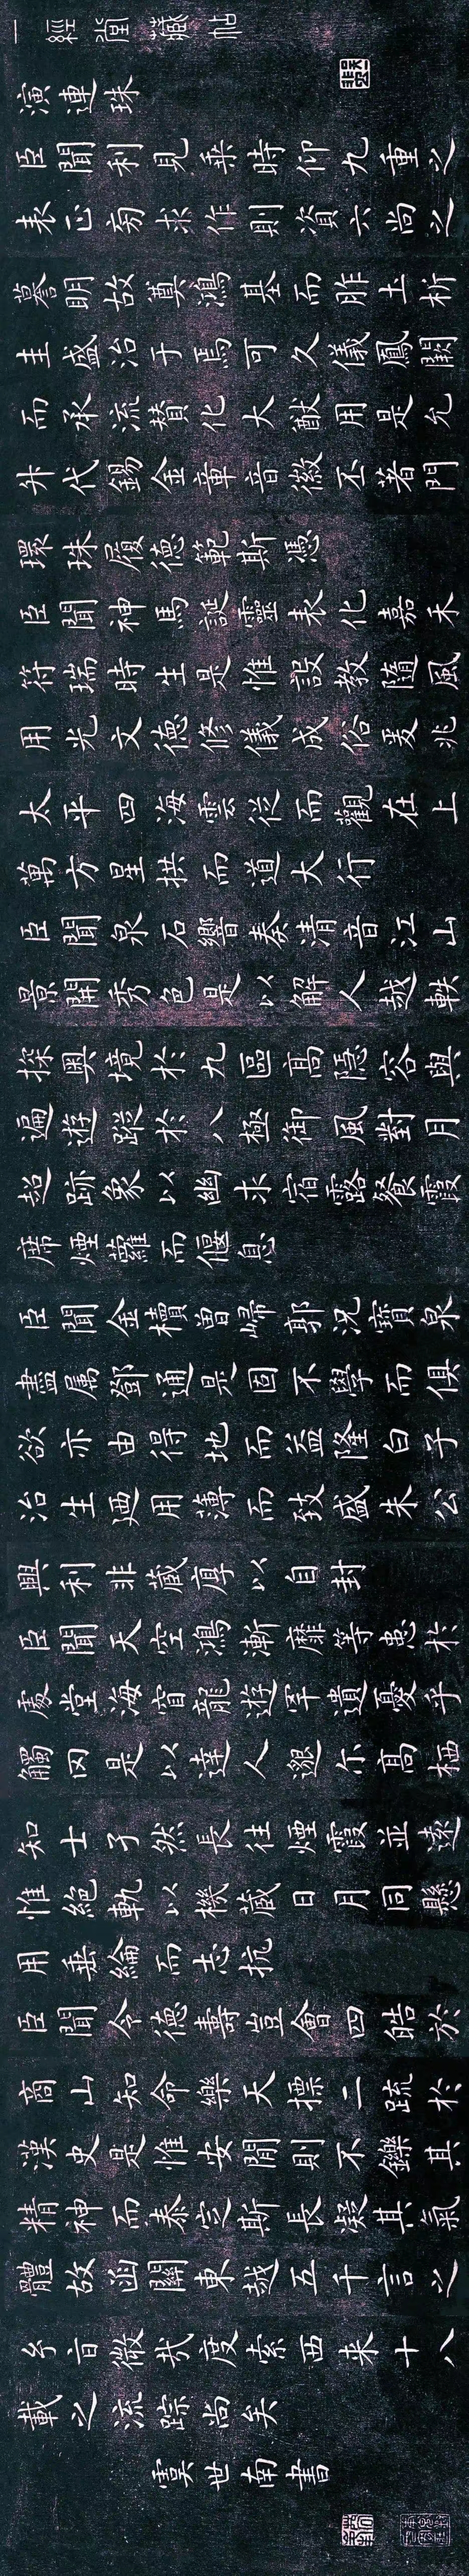 一經堂藏帖
演連珠
臣聞利見乘時仰九重之
表正芻求作則資六尚之
謩明故奠鴻基而胙土析
圭盛治于焉可久儀鳳闕
而承流贊化大猷用是允
升代錫金章音徽丕著門
環珠履德範斯憑
臣聞神馬誕靈表化嘉禾
符瑞時生是惟設教隨風
用光文德修儀成俗爰兆
太平四海雲從而觀在上
萬方星拱而道大行
臣聞泉石響奏清音江山
景開秀色是以解人越軼
探奧境於九區高隱容與
遍遊蹤於八極御風對月
超跡象以幽求宿露餐霞
席煙蘿而偃息
臣聞金櫝曾歸郭況寶泉
盡属鄧通是固不學而俱
欲亦由得地而益隆白子
治生廼用薄而致盛朱公
興利非蔵厚以自封
臣聞天空鴻漸靡等患於
處堂海窅龍遊罕遺憂乎
觸网是以達人邈尔高栖
知士孑然長往煙霞並遠
惟絕軌以機蔵日月同懸
用垂綸而志抗
臣聞令德壽豈會四皓於
商山知命樂天摽二疏於
漢史是惟安閒則不鑠其
精神而泰定斯長凝其氣
體故函關東越五千言之
音微哉度索西来十八
載之流踪尚矣
虞世南書